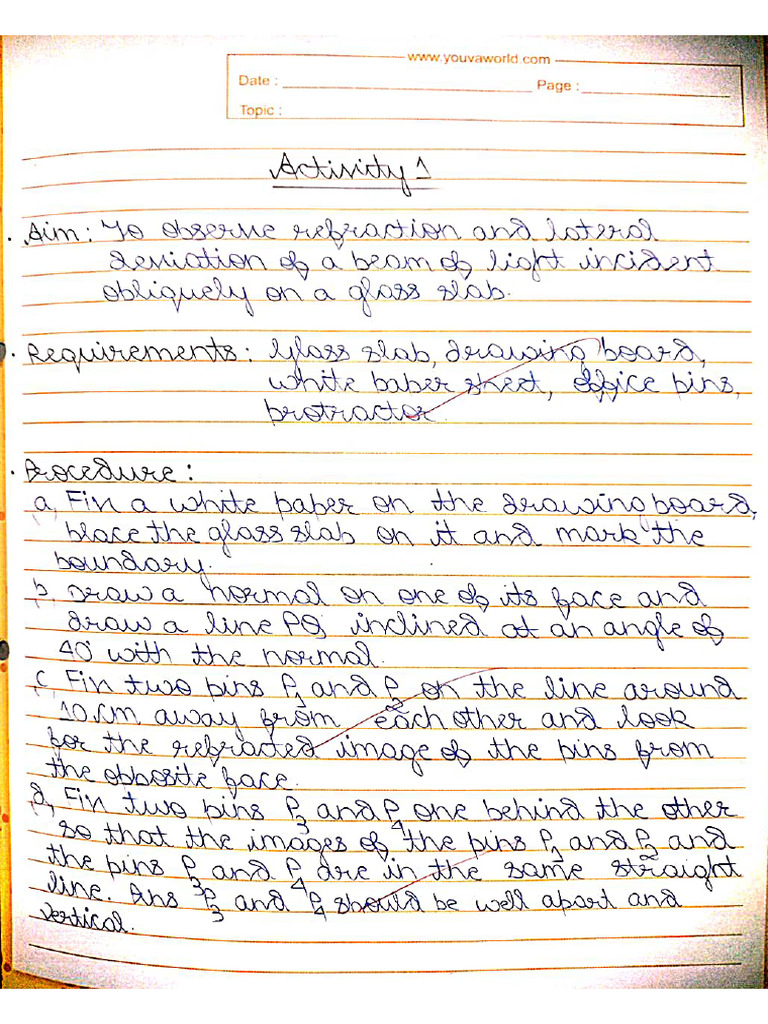 www.youvaworld.com
Date : Page :
Topic :
Activity 1
• Aim: To observe refraction and lateral
deviation of a beam of light incident
obliquely on a glass slab.
• Requirements: Glass slab, drawing board,
white paper sheet, office pins,
protractor.
• Procedure:
a, Fin a white paper on the drawing board,
place the glass slab on it and mark the
boundary.
b, Draw a normal on one of its face and
draw a line PQ inclined at an angle of
40° with the normal.
c, Fin two pins P1 and P2 on the line around
10 cm away from each other and look
for the refracted image of the pins from
the opposite face.
d, Fin two pins P3 and P4 one behind the other
so that the images of the pins P1 and P2 and
the pins P3 and P4 are in the same straight
line. Ans P3 and P4 should be well apart and
vertical.